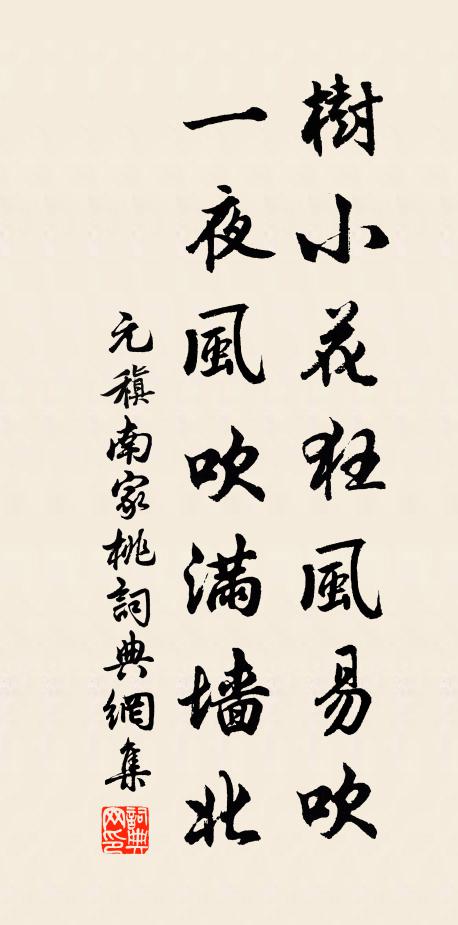 樹小花狂風易吹
一夜風吹滿墻北
元稹南家桃詞典網集
詞典网印